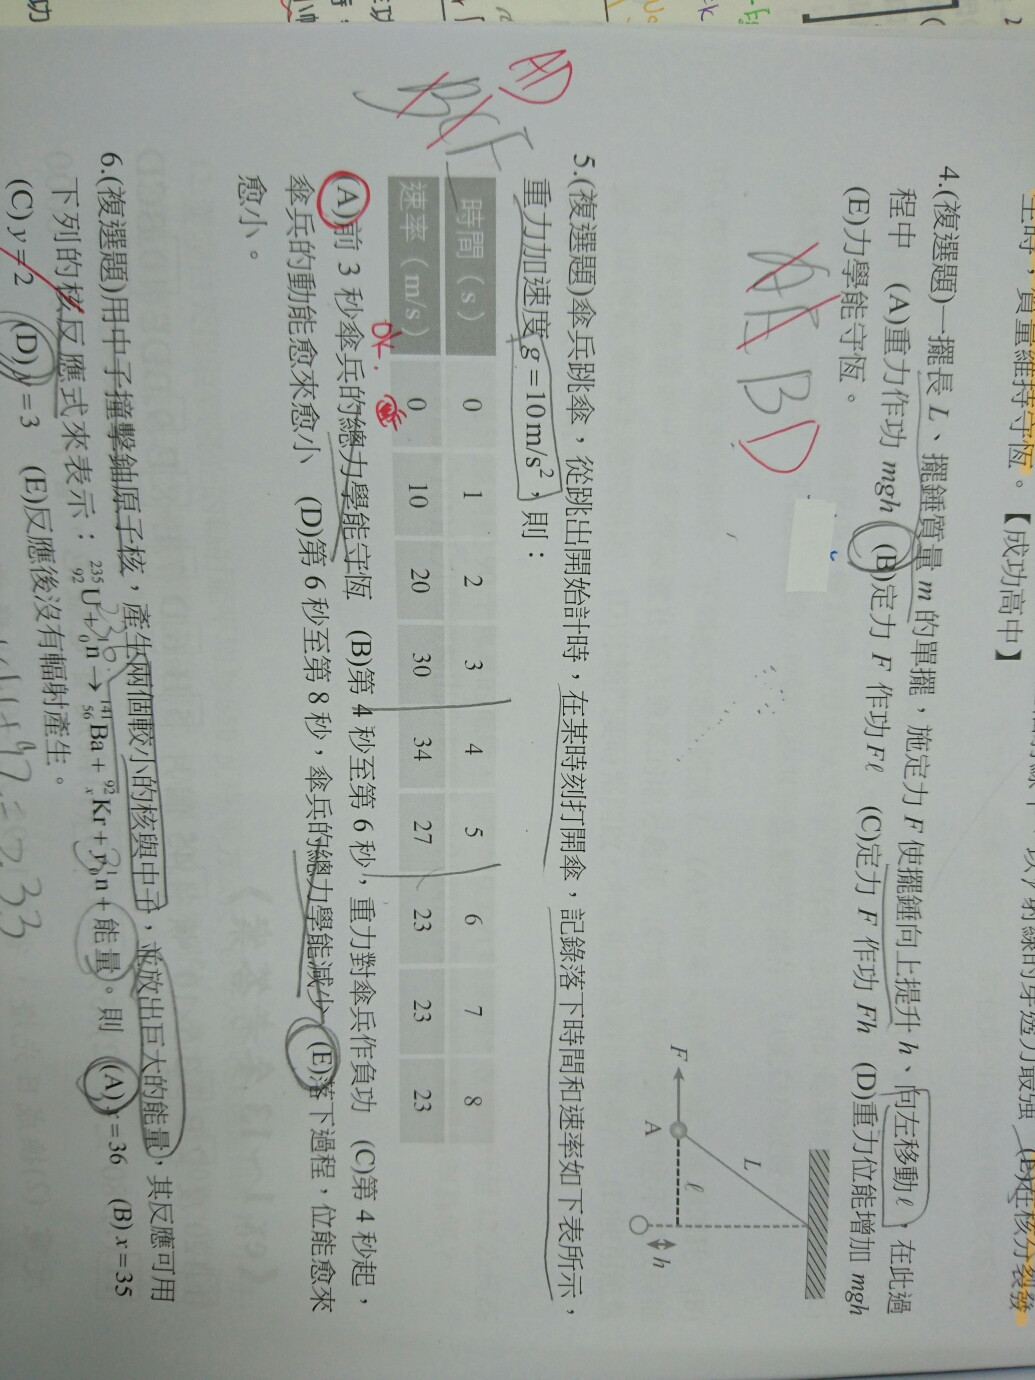 生時，質量維持守恆。【成功高中】
4.(複選題)一擺長 L、擺錘質量 m 的單擺，施定力 F 使擺錘向上提升 h、向左移動 ℓ，在此過
程中 (A)重力作功 mgh (B)定力 F 作功 Fℓ (C)定力 F 作功 Fh (D)重力位能增加 mgh
(E)力學能守恆。
BD
L
F
A
ℓ
h
5.(複選題)傘兵跳傘，從跳出開始計時，在某時刻打開傘，記錄落下時間和速率如下表所示，
重力加速度 g = 10 m/s²，則：
AD
BCE
時間（s） 0 1 2 3 4 5 6 7 8
速率（m/s） 0 10 20 30 34 27 23 23 23
OK.
(A)前 3 秒傘兵的總力學能守恆 (B)第 4 秒至第 6 秒，重力對傘兵作負功 (C)第 4 秒起，
傘兵的動能愈來愈小 (D)第 6 秒至第 8 秒，傘兵的總力學能減少 (E)落下過程，位能愈來
愈小。
6.(複選題)用中子撞擊鈾原子核，產生兩個較小的核與中子，並放出巨大的能量，其反應可用
下列的核反應式來表示：²³⁵₉₂U + ¹₀n → ¹⁴¹₅₆Ba + ⁹²ₓKr + y¹₀n + 能量。則 (A) x = 36 (B) x = 35
236
3
(C) y = 2 (D) y = 3 (E)反應後沒有輻射產生。
141+92=233